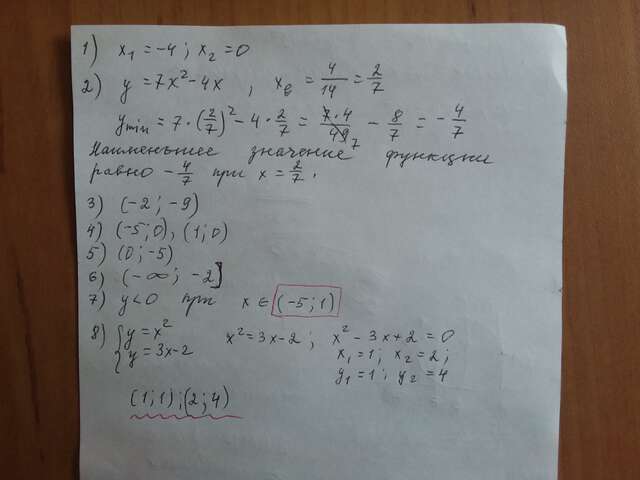 1) x₁ = -4 ; x₂ = 0
2) y = 7x² - 4x , x_в = 4/14 = 2/7
y_min = 7 · (2/7)² - 4 · 2/7 = 7·4/49 7 - 8/7 = - 4/7
Наименьшее значение функции
равно - 4/7 при x = 2/7 .
3) (-2 ; -9)
4) (-5 ; 0) , (1 ; 0)
5) (0 ; -5)
6) (-∞ ; -2]
7) y < 0 при x ∈ (-5 ; 1)
8) { y = x² x² = 3x - 2 ; x² - 3x + 2 = 0
y = 3x - 2 x₁ = 1 ; x₂ = 2 ;
y₁ = 1 ; y₂ = 4
(1 ; 1) ; (2 ; 4)